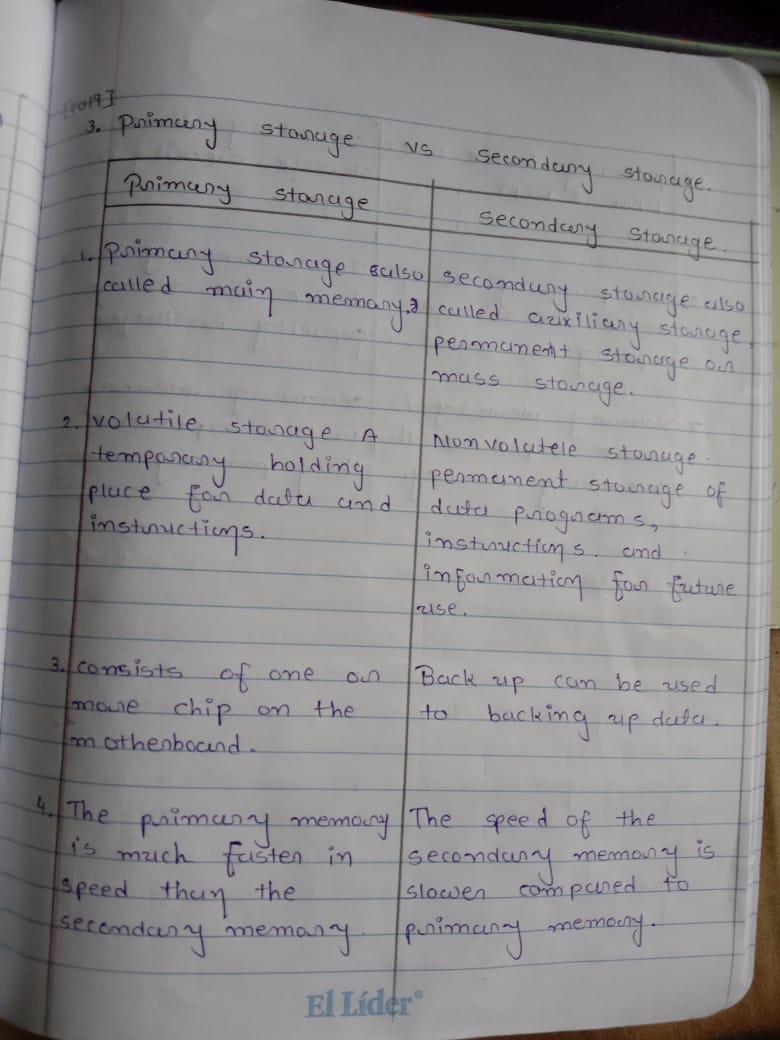 [2019]
3. Primary storage vs secondary storage.
Primary storage
Secondary storage.
1. Primary storage also
called main memory.
secondary storage also
called auxiliary storage,
permanent storage or
mass storage.
2. volatile storage A
temporary holding
place for data and
instructions.
Nonvolatele storage.
permanent storage of
data programs,
instructions. and
information for future
use.
3. consists of one or
more chip on the
motherboard.
Back up can be used
to backing up data.
4. The primary memory
is much faster in
speed than the
secondary memory.
The speed of the
secondary memory is
slower compared to
primary memory.
El Líder